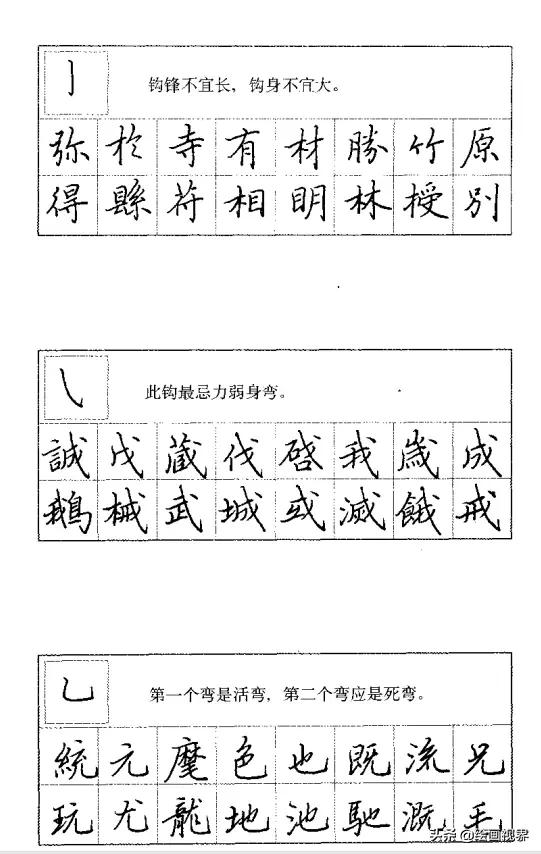 亅
钩锋不宜长，钩身不宜大。
弥 於 寺 有 材 勝 竹 原
得 縣 苻 相 明 林 授 别
㇂
此钩最忌力弱身弯。
誠 戊 蔵 伐 啓 我 歳 成
鵝 械 武 城 或 滅 餓 戒
乚
第一个弯是活弯，第二个弯应是死弯。
統 元 麾 色 也 既 流 兄
玩 尤 龍 地 池 馳 溉 毛
头条 @绘画视界